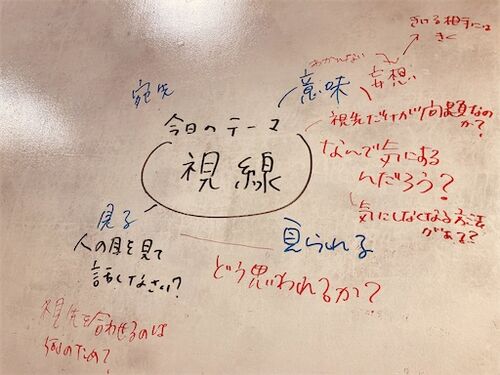 きいる相手には
きく
わかんない
宛先
意味
妄想
今日のテーマ
視線
視先だけが問題なの
か?
なんで気にある
んだろう?
気にしなくなる方法
がある?
見る
人の目を見て
話しなさい?
見られる
どう思われるか?
視先を合わせるのは
何のため?